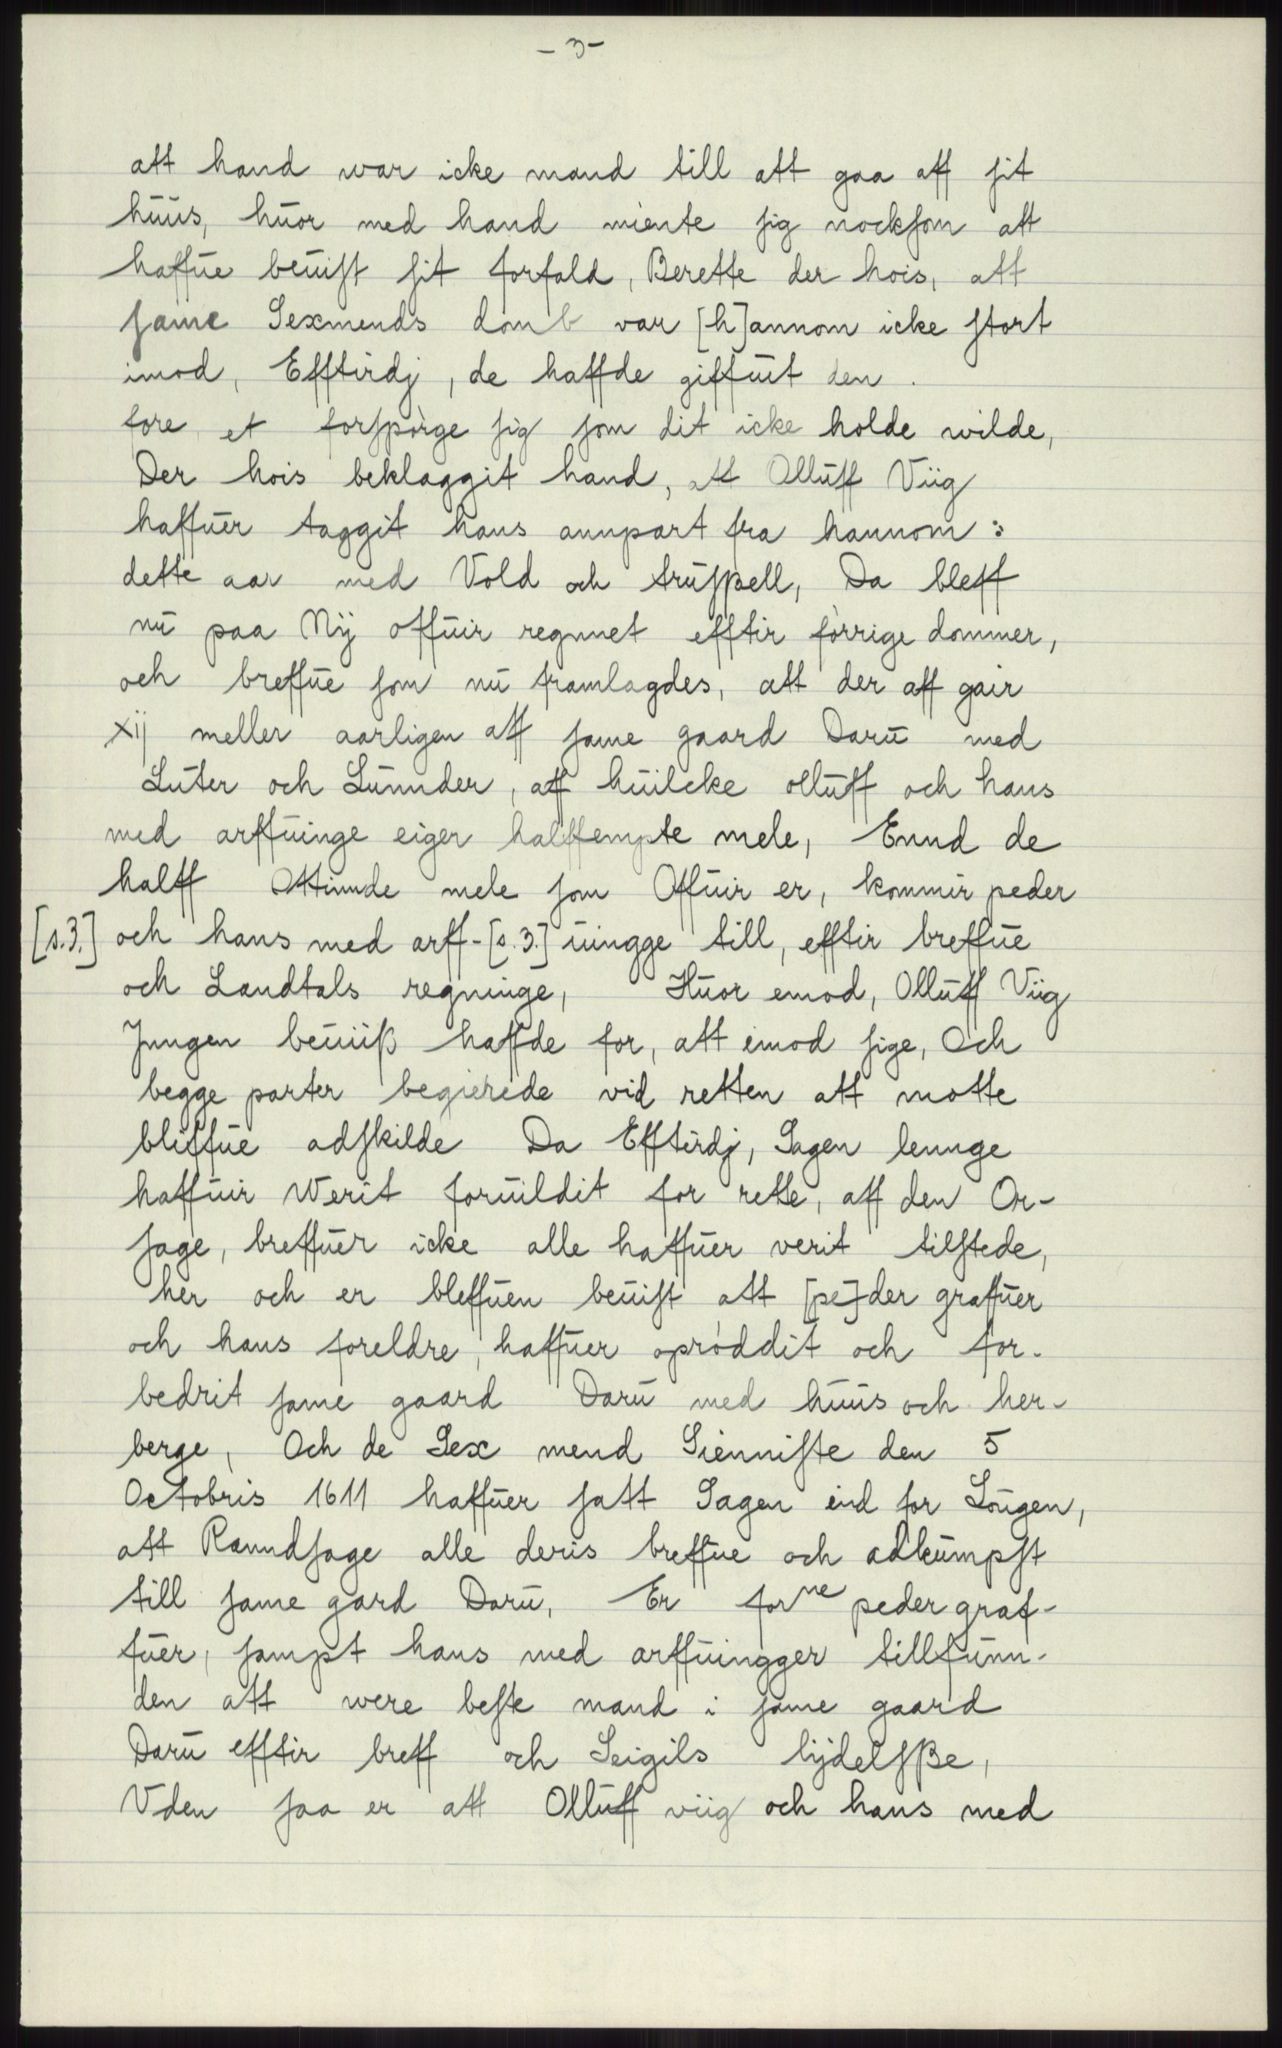 - 3 -
att hand war icke mand till att gaa aff ſit
húús, húor med hand miente ſig nockſom att
haffúe beúiſt ſit forfald, Berette der hois, att
ſame Sexmends domb var [h]annom icke ſtort
imod, Efftirdj, de haffde giffúit den.
fore et forſpørge ſig ſom dit icke holde wilde,
Der hois beklaggit hand, att Ollúff Viig
haffúer taggit hans annpart fra hannom :
dette aar med Vold och trúſſell, Da bleff
nú paa Nÿ offúir regnnet efftirførrige dommer,
och breffúe ſom nú framlagdes, att der aff gair
xij meller aarligen aff ſame gaard Darú med
Lúter och Lúnnder, aff húilcke ollúff och hans
med arffúinge eiger halffempte mele, Ennd de
halff Ottinnde mele ſom Offúir er, kommir peder
[s.3.] och hans med arff-[s.3.] úingge till, efftir breffúe
och Landtals regninge, Húor emod, Ollúff Viig
Jnngen beúiiß haffde for, att imod ſige, Och
begge parter begierede vid retten att motte
bliffúe adſkilde Da Efftirdj, Sagen lennge
haffúir Werit forúildit for rette, aff den Or-
ſage, breffúer icke alle haffúer verit tilſtede,
her och er bleffúen beúiſt att [pe]der graffúer
och hans foreldre, haffúer oprøddit och for-
bedrit ſame gaard Darú med húús och her-
berge, Och de Sex mend Sienniſte den 5
Octobris 1611 haffúer ſatt Sagen ind for Loúgen,
att Ranndſage alle deris breffúe och adkúmpſt
till ſame gard Darú, Er forne peder graf-
fúer, ſampt hans med arffúingger tillfúnn-
den att were beſte mand i ſame gaard
Darú efftir breff och Seigils lÿdelſße,
Vden ſaa er att Ollúff viig och hans med